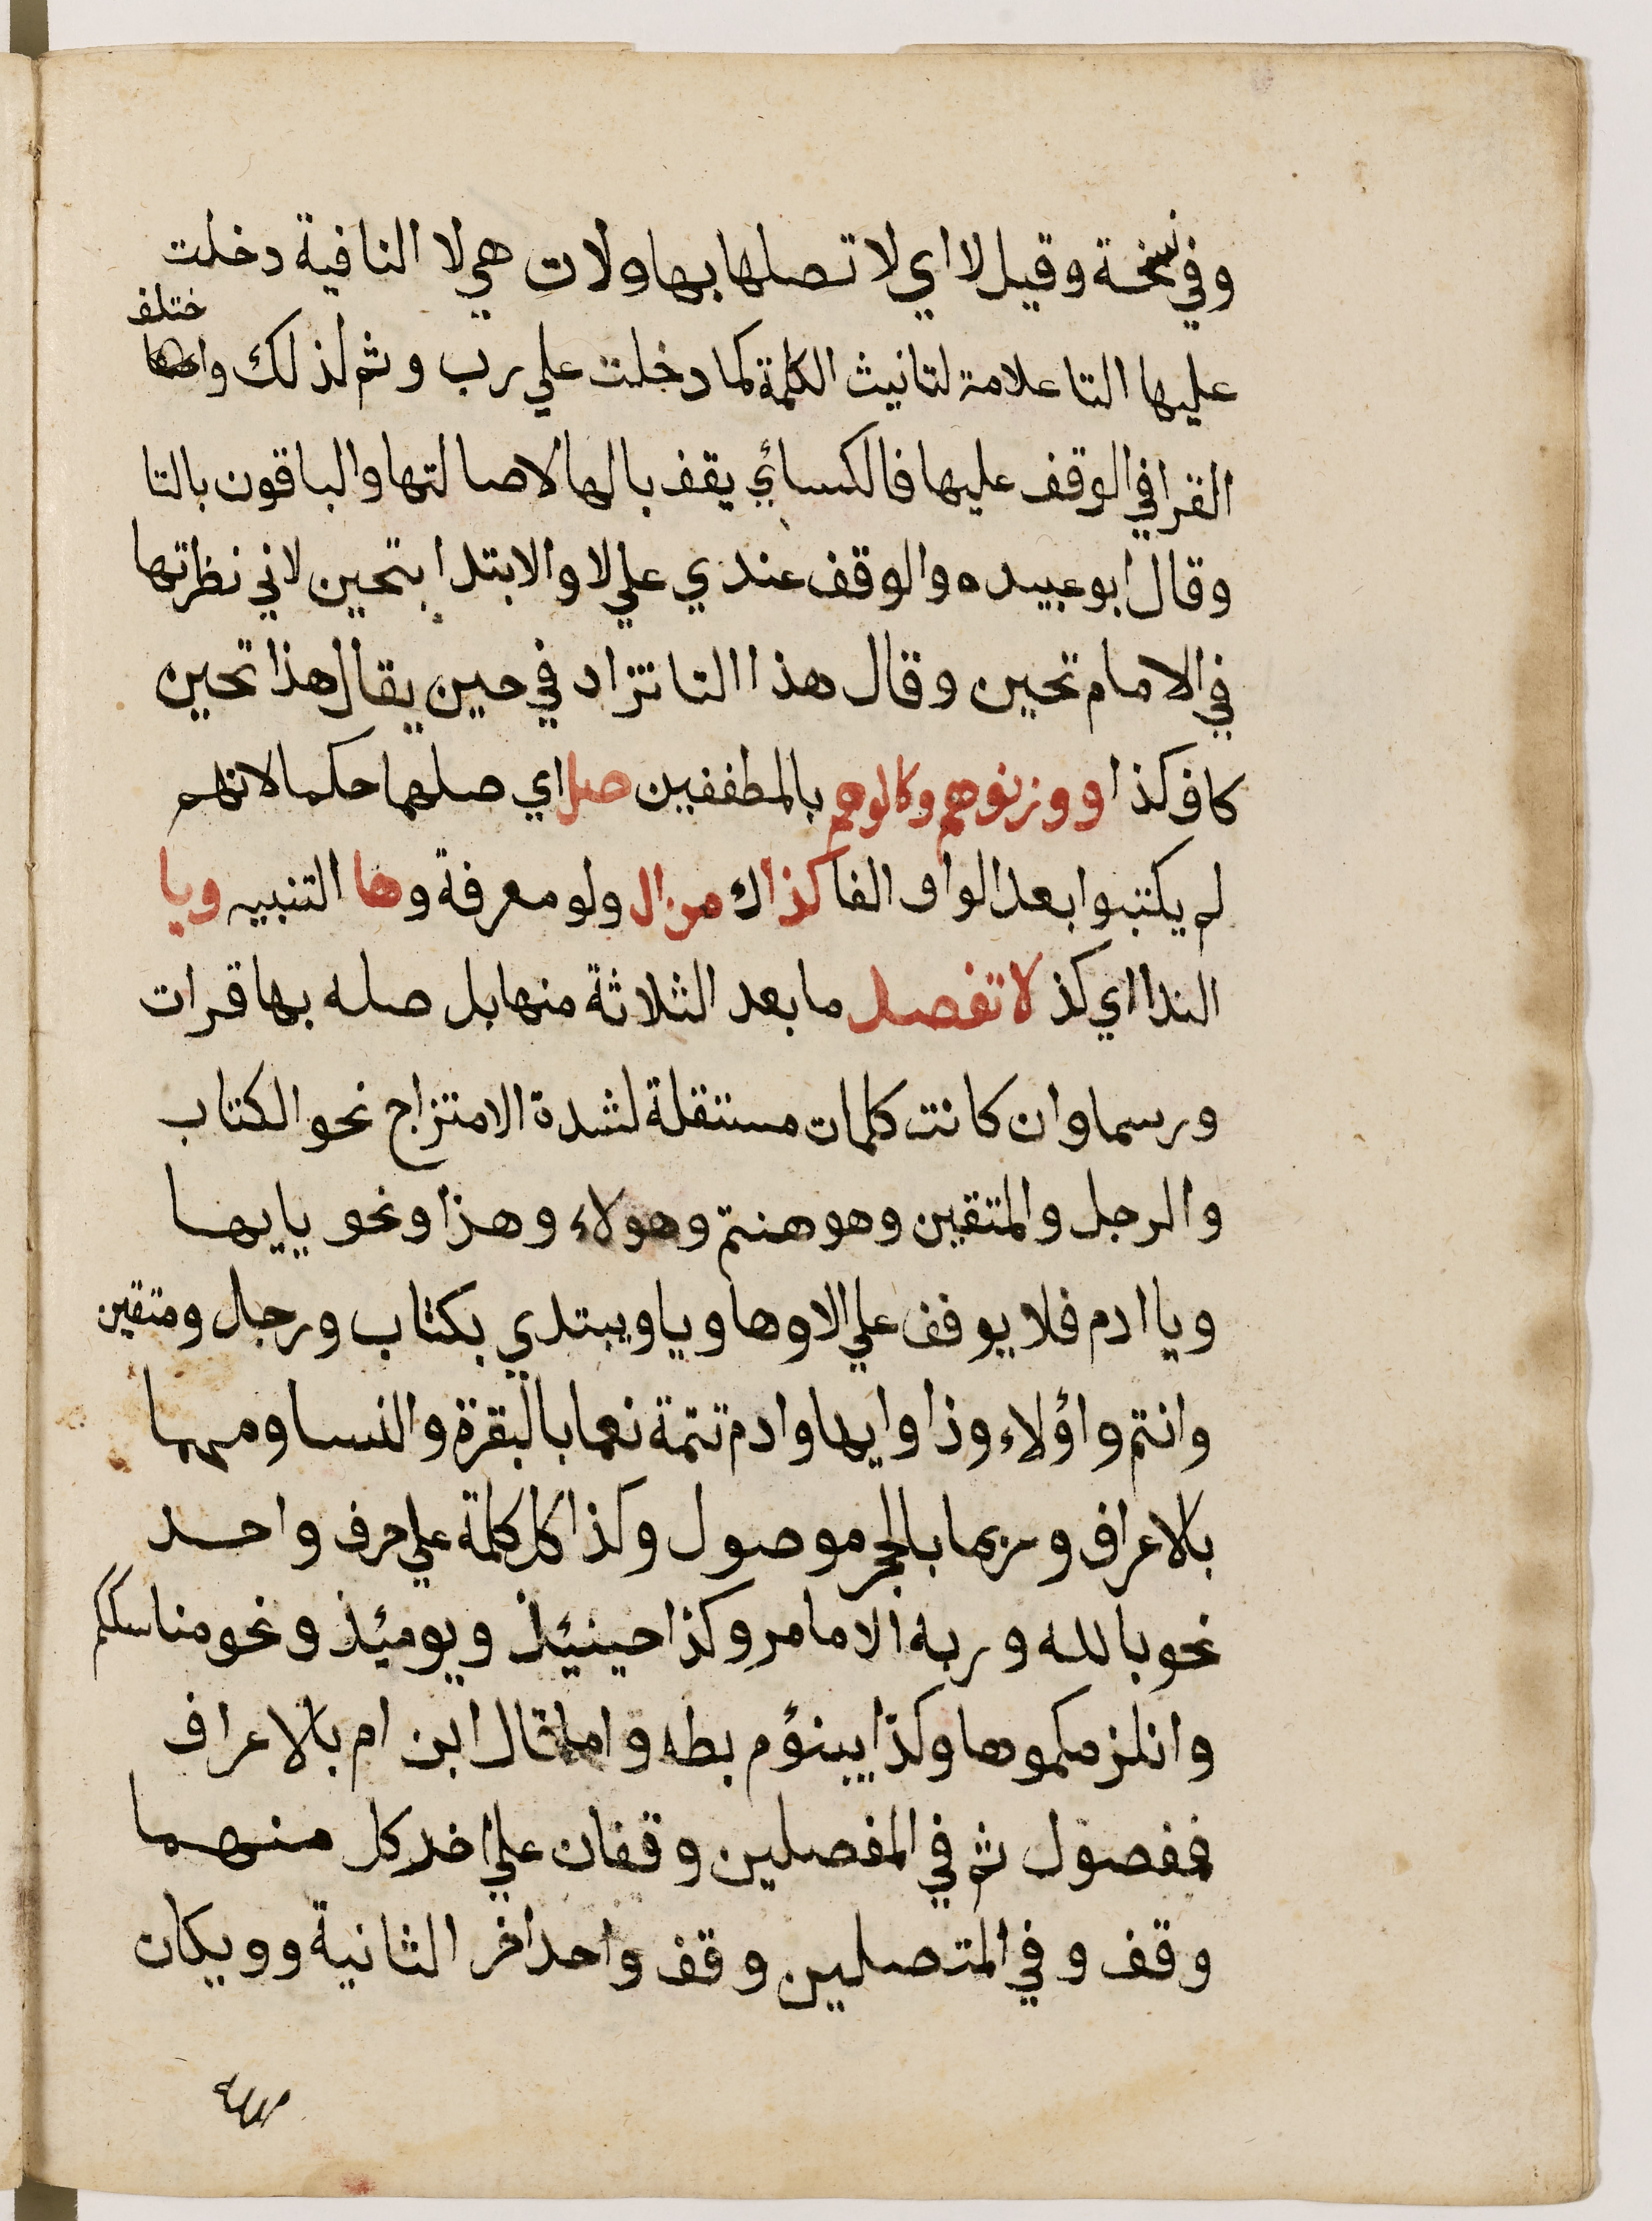 وفي نسخة وقيل لا اي لا تصلها بها ولات هي لا النافية دخلت
عليها التا علامة لتانيث الكلمة كما دخلت علي رب وثم لذلك واختلف
القرا في الوقف عليها فالكسائي يقف بالها لاصالتها والباقون بالتا
وقال ابو عبيده والوقف عندي علي لا والابتدا بتحين لاني نظرتها
في الامام تحين وقال هذا التا تزاد في حين يقال هذا تحين
كاف كذا او وزنوهم وكالوهم بالمطففين صل اي صلهما حكما لانهم
لم يكتبوا بعد الواو الفا كذاك من ال ولو معرفة وها التنبيه ويا
الندا اي كذ لا تفصل ما بعد الثلاثة منها بل صله بها قرات
ورسما وان كانت كلمات مستقلة لشدة الامتزاج نحو الكتاب
والرجل والمتقين وهو هنتم وهولاء وهذا ونحو يايها
ويا ادم فلا يوقف علي الا وها ويا ويبتدي بكتاب ورجل ومتقين
وانتم واؤلاء وذا وايها وادم تتمة نعما بالبقرة والنسا ومهما
بالاعراف وربما بالحجر موصول وكذا كل كلمة علي حرف واحد
نحو بالله وربه الامامر وكذا حينيئذ ويوميئذ ونحو مناسككم
وانلزمكموها وكذا يبنؤم بطه واما قال ابن ام بالاعراف
فمفصول ثم في المفصلين وقفان علي اخر كل منهما
وقف وفي المتصلين وقف واحد اخر الثانية وويكان